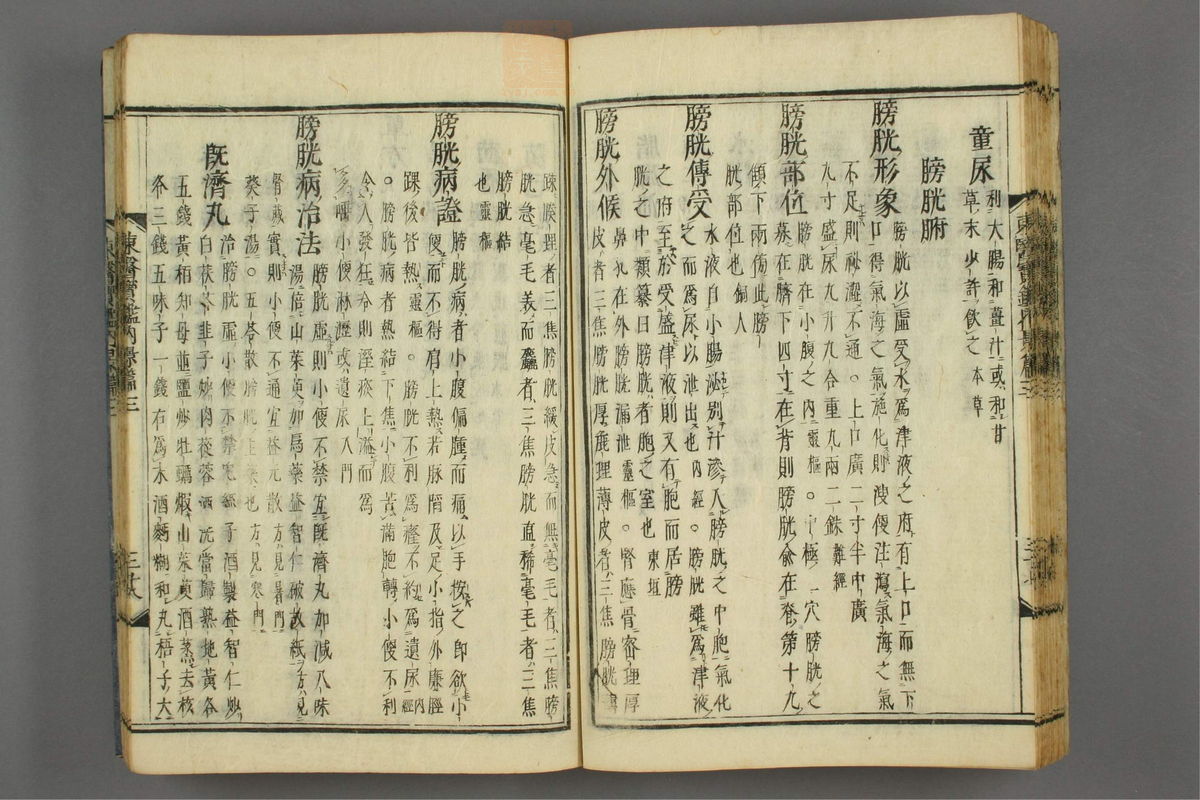 童尿 利大腸和薑汁或和甘
草末少許飲之 本草
膀胱腑
膀胱形象 膀胱以虛受水爲津液之府有上口而無下
口得氣海之氣施化則溲便注瀉氣海之氣
不足則祕澀不通○上口廣二寸半中廣
九寸盛尿九升九合重九兩二銖 難經
膀胱部位 膀胱在小腹之內 靈樞○中極一穴膀胱之
募在臍下四寸在背則膀胱兪在脊第十九
傾下兩傍此膀
胱部位也 銅人
膀胱傳受 水液自小腸泌別汁滲入膀胱之中胞氣化
之而爲尿以泄出也 內經○膀胱雖爲津液
之府至於受盛津液則又有胞而居膀
胱之中類纂曰膀胱者胞之室也 東垣
膀胱外候 鼻孔在外膀胱漏泄 靈樞○腎應骨密理厚
皮者三焦膀胱厚麁理薄皮者三焦膀胱薄
東醫寶鑑內景篇三
疎腠理者三焦膀胱緩皮急而無毫毛者三焦膀
胱急毫毛美而麤者三焦膀胱直稀毫毛者三焦
膀胱結
也 靈樞
膀胱病證 膀胱病者小腹偏腫而痛以手按之卽欲小
便而不得肩上熱若脉陷及足小指外廉脛
踝後皆熱 靈樞○膀胱不利爲癃不約爲遺尿 內經
○膀胱病者熱結下焦小腹苦滿胞轉小便不利
令人發狂冷則溼痰上溢而爲
多唾小便淋瀝或遺尿 入門
膀胱病治法 膀胱虛則小便不禁宜旣濟丸加減八味
湯倍山茱萸加烏藥益智仁破故紙 方見
腎臟 實則小便不通宜益元散 方見暑門
葵子湯○五苓散膀胱主藥也 方見寒門
旣濟丸 治膀胱虛小便不禁兎絲子酒製益智仁炒
白茯苓韭子炒肉蓯蓉酒洗當歸熟地黃各
五錢黃栢知母並鹽炒牡蠣煆山茱萸酒蒸去核
各三錢五味子一錢右爲末酒麪糊和丸梧子大
東醫寶鑑內景篇三
三 廿八